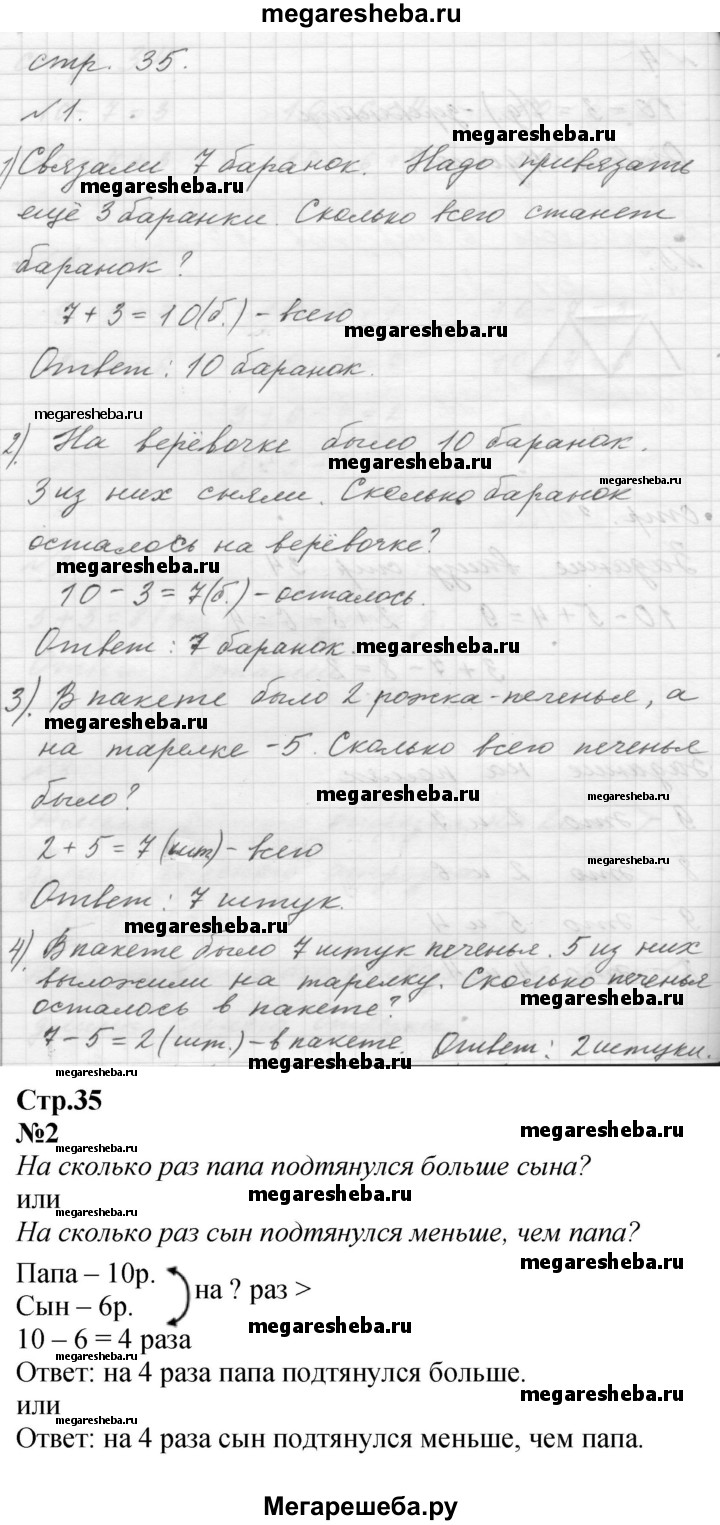 megaresheba.ru
стр. 35.
№1.
megaresheba.ru
1) Связали 7 баранок. Надо привязать
megaresheba.ru
ещё 3 баранки. Сколько всего станет
баранок?
7 + 3 = 10 (б.) - всего
megaresheba.ru
Ответ: 10 баранок.
megaresheba.ru
2) На верёвочке было 10 баранок.
megaresheba.ru
megaresheba.ru
3 из них сняли. Сколько баранок
осталось на верёвочке?
megaresheba.ru
10 - 3 = 7 (б.) - осталось.
Ответ: 7 баранок.
megaresheba.ru
3). В пакете было 2 рожка-печенья, а
megaresheba.ru
на тарелке - 5. Сколько всего печенья
было?
megaresheba.ru
megaresheba.ru
2 + 5 = 7 (шт) - всего
megaresheba.ru
Ответ: 7 штук.
megaresheba.ru
4). В пакете было 7 штук печенья. 5 из них
выложили на тарелку. Сколько печенья
megaresheba.ru
осталось в пакете?
7 - 5 = 2 (шт.) - в пакете. Ответ: 2 штуки.
megaresheba.ru
megaresheba.ru
Стр.35
№2
megaresheba.ru
megaresheba.ru
На сколько раз папа подтянулся больше сына?
или
megaresheba.ru
megaresheba.ru
На сколько раз сын подтянулся меньше, чем папа?
megaresheba.ru
megaresheba.ru
Папа – 10р.
на ? раз >
Сын – 6р.
megaresheba.ru
10 – 6 = 4 раза
megaresheba.ru
Ответ: на 4 раза папа подтянулся больше.
megaresheba.ru
или
megaresheba.ru
Ответ: на 4 раза сын подтянулся меньше, чем папа.
Мегарешеба.ру